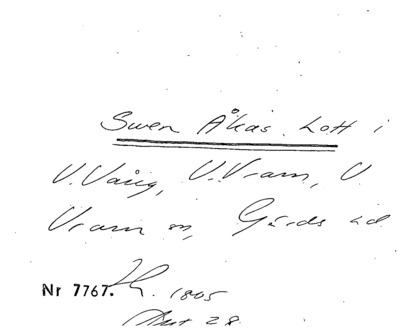 Swen Åkas Lott i
V. Vång, V. Vram, V
Vram sn, Gärds hd
Nr 7767. 1805
28